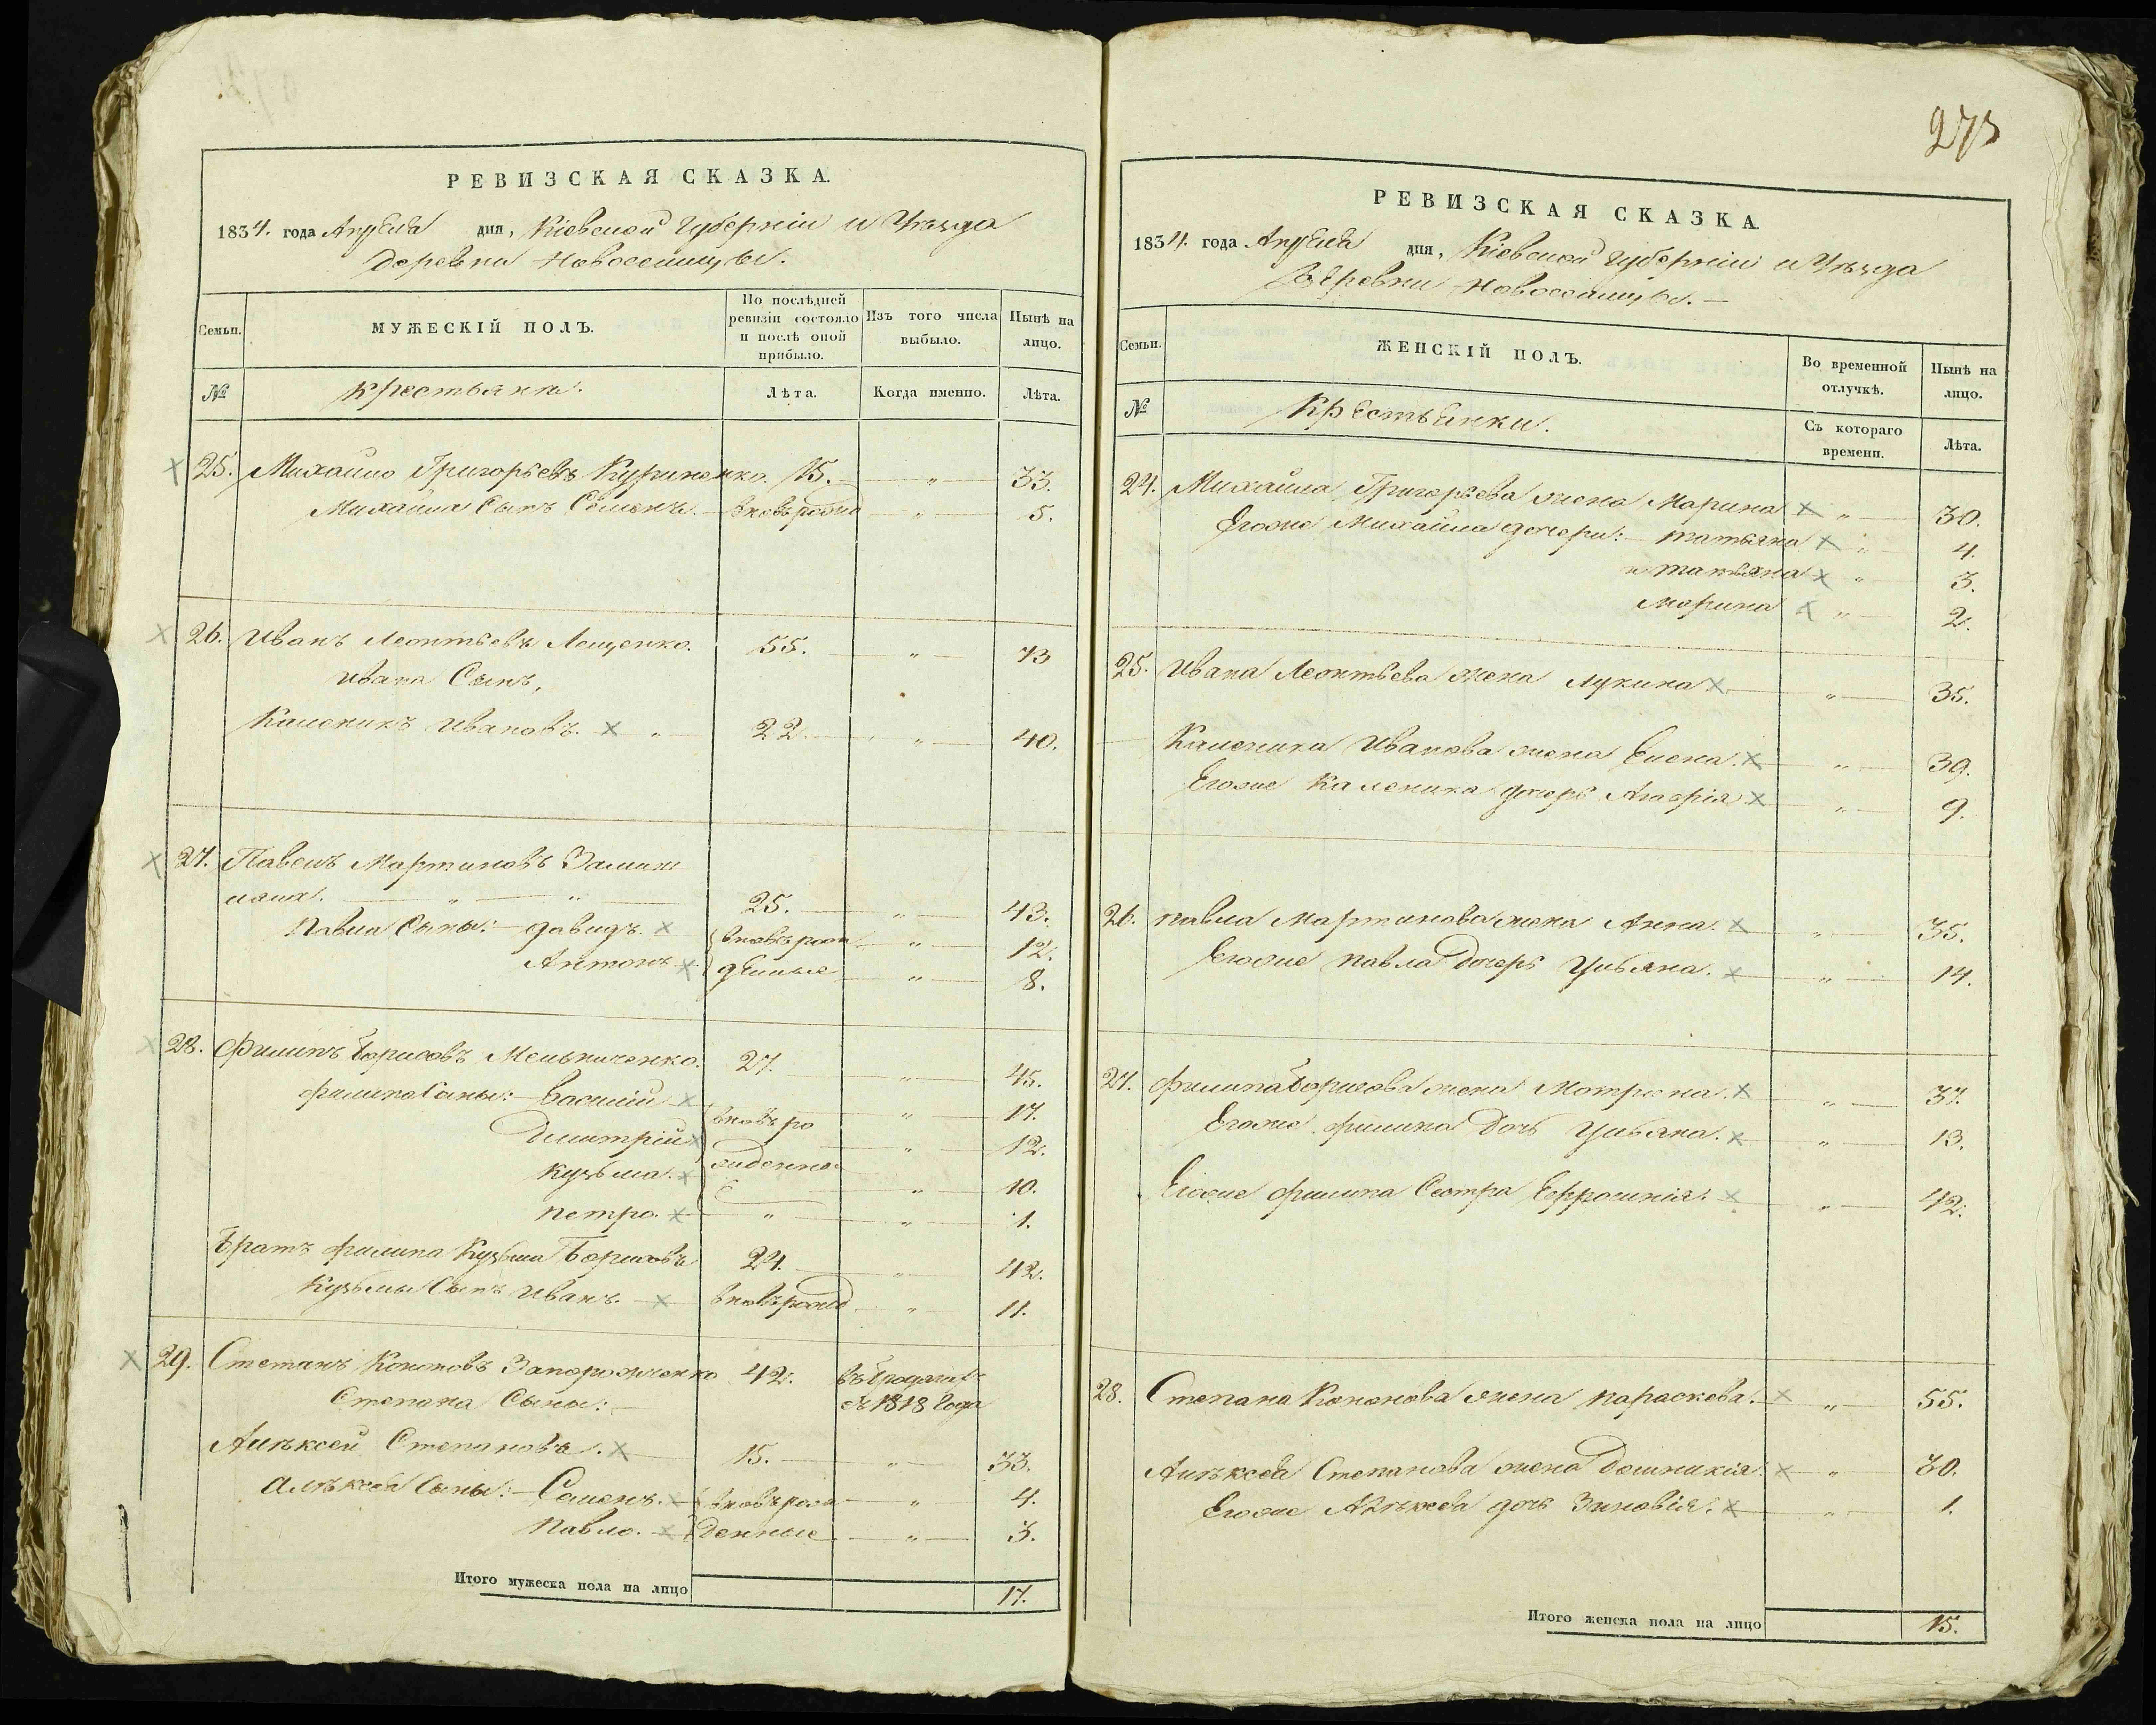 РЕВИЗСКАЯ СКАЗКА.
1834. года Апреля дня, Кіевской Губерніи и Уѣзда
Деревни Новоселицы.
Семьи.
МУЖЕСКІЙ ПОЛЪ.
По послѣдней ревизіи состояло и послѣ оной прибыло.
Изъ того числа выбыло.
Нынѣ на лицо.
№
Крестьяне.
Лѣта.
Когда именно.
Лѣта.
25. Михайло Григорьевъ Куриненко. 15. — „ — 33.
Михайла Сынъ Семенъ. — вновърожд — „ — 5.
26. Иванъ Леонтьевъ Лещенко. 55. — „ — 73
Ивана Сынъ,
Каленикъ Ивановъ. „ 22. — „ — 40.
27. Павелъ Мартиновъ
„ — „ 25. — „ — 43.
Павла Сыны: — Давидъ. вновърож — „ — 12.
Антонъ денные — „ — 8.
28. Филипъ Борисовъ Мельниченко. 27. „ — 45.
Филипа Сыны: — Василій „ — 17.
вновъ ро
Дмитрій — „ — 12.
жденно
Кузьма. е — „ — 10.
Петро. — „ — „ — 1.
Братъ Филипа Кузьма Борисовъ 24. — „ — 42.
Кузьмы Сынъ Иванъ. — вновърожд — „ — 11.
29. Степанъ Кононовъ Запорожченко 42. въ
Степана Сыны: — съ 1818 Года
Алѣксей Степановъ. 15. — „ — 33.
Алѣксея Сыны: — Семенъ. — вновърож — „ — 4.
Павло. — денные — „ — 3.
Итого мужеска пола на лицо 17.
273
РЕВИЗСКАЯ СКАЗКА
1834. года Апреля дня, Кіевской Губерніи и Уѣзда
Деревни Новоселицы. —
Семьи.
ЖЕНСКІЙ ПОЛЪ.
Во временной отлучкѣ.
Нынѣ на лицо.
№
Крестьянки.
Съ котораго времени.
Лѣта.
24. Михайла Григорьева жена Марина „ — 30.
Егоже Михайла дочери: — татьяна „ — 4.
и татьяна „ — 3.
Марина „ — 2.
25. Ивана Леонтьева жена Лукина — „ — 35.
Каленика Иванова жена Елена. — „ — 39.
Егоже Каленика дочерь Агафія — „ — 9.
26. Павла Мартинова жена Анна. — „ — 35.
Егоже Павла Дочерь Ульяна. — „ — 14.
27. Филипа Борисова жена Мотрона. — „ — 37.
Егоже Филипа Дочь Ульяна. — „ — 13.
Егоже Филипа Сестра Ефросинія. — „ — 42.
28. Степана Кононова жена Параскева. — „ — 55.
Алѣксея Степанова жена Домникія — „ — 30.
Егоже Алѣксея дочь Зиновія. — „ — 1.
Итого женска пола на лицо 15.